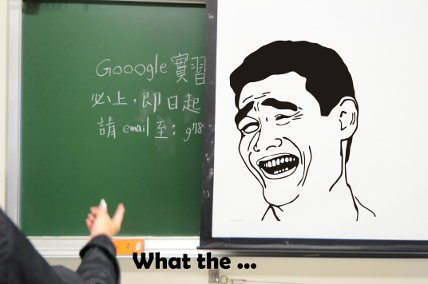 Gooogle實習
必上，即日起
請email至：g78
What the ...